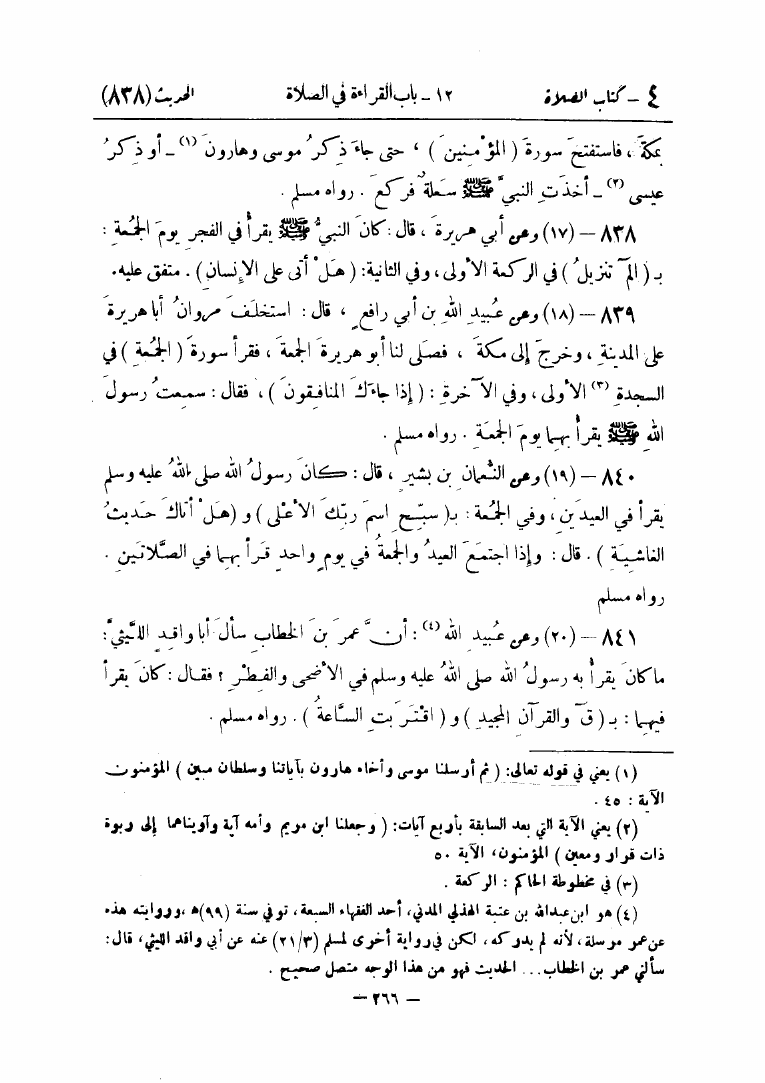 ٤ – كتاب الصلاة ١٢ – باب القراءة في الصلاة الحديث (٨٣٨)
بمكةَ ، فاستفتحَ سورةَ ( المؤْمِنينَ ) ، حتى جاءَ ذِكرُ موسى وهارونَ (١) – أو ذِكرُ
عيسى (٢) – أخذَتِ النبيَّ ﷺ سَعلةٌ فركعَ . رواه مسلم .
٨٣٨ – (١٧) وعن أبي هريرةَ ، قال : كانَ النبيُّ ﷺ يقرأُ في الفجرِ يومَ الجُمعةِ :
بـ ( الم تنزيلُ ) في الركعةِ الأولى ، وفي الثانية : ( هَلْ أتى على الإنسانِ ) . متفق عليه .
٨٣٩ – (١٨) وعن عُبيدِ اللهِ بنِ أبي رافعٍ ، قال : استخلَفَ مروانُ أبا هريرةَ
على المدينةِ ، وخرجَ إلى مكةَ ، فصلى لنا أبو هريرةَ الجمعةَ ، فقرأ سورةَ ( الجُمُعةِ ) في
السجدةِ (٣) الأولى ، وفي الآخرةِ : ( إذا جاءَكَ المنافِقونَ ) ، فقال : سمعتُ رسولَ
اللهِ ﷺ يقرأُ بهما يومَ الجمعَةِ . رواه مسلم .
٨٤٠ – (١٩) وعن النُّعمانِ بنِ بشيرٍ ، قال : كانَ رسولُ الله صلى اللهُ عليه وسلم
يقرأ في العيدَينِ ، وفي الجُمعة : بـ( سبِّحِ اسمَ ربِّكَ الأعْلى ) و ( هَلْ أتاكَ حَديثُ
الغاشِيَةِ ) . قال : وإذا اجتمَعَ العيدُ والجمعةُ في يومٍ واحدٍ قرأ بهما في الصَّلاتَينِ .
رواه مسلم
٨٤١ – (٢٠) وعن عُبيدِ الله (٤) : أنَّ عمرَ بنَ الخطابِ سألَ أبا واقِدٍ اللَّيثيَّ :
ما كانَ يقرأُ به رسولُ الله صلى اللهُ عليه وسلم في الأضحى والفِطْرِ ؟ فقال : كانَ يقرأُ
فيهما : بـ ( قَ والقرآنِ المجيدِ ) و ( اقْتَرَبتِ السَّاعةُ ) . رواه مسلم .
(١) يعني في قوله تعالى : ( ثم أرسلنا موسى وأخاه هارون بآياتنا وسلطان مبين ) المؤمنون
الآية : ٤٥ .
(٢) يعني الآية التي بعد السابقة بأربع آيات : ( وجعلنا ابن مريم وأمه آية وآويناهما إلى ربوة
ذات قرار ومعين ) المؤمنون ، الآية ٥٠
(٣) في مخطوطة الحاكم : الركعة .
(٤) هو ابن عبدالله بن عتبة الهذلي المدني ، أحد الفقهاء السبعة ، توفي سنة (٩٩)ه ، وروايته هذه
عن عمر مرسلة ، لأنه لم يدركه ، لكن في رواية أخرى لمسلم (٢١/٣) عنه عن أبي واقد الليثي ، قال :
سألني عمر بن الخطاب ... الحديث فهو من هذا الوجه متصل صحيح .
– ٢٦٦ –